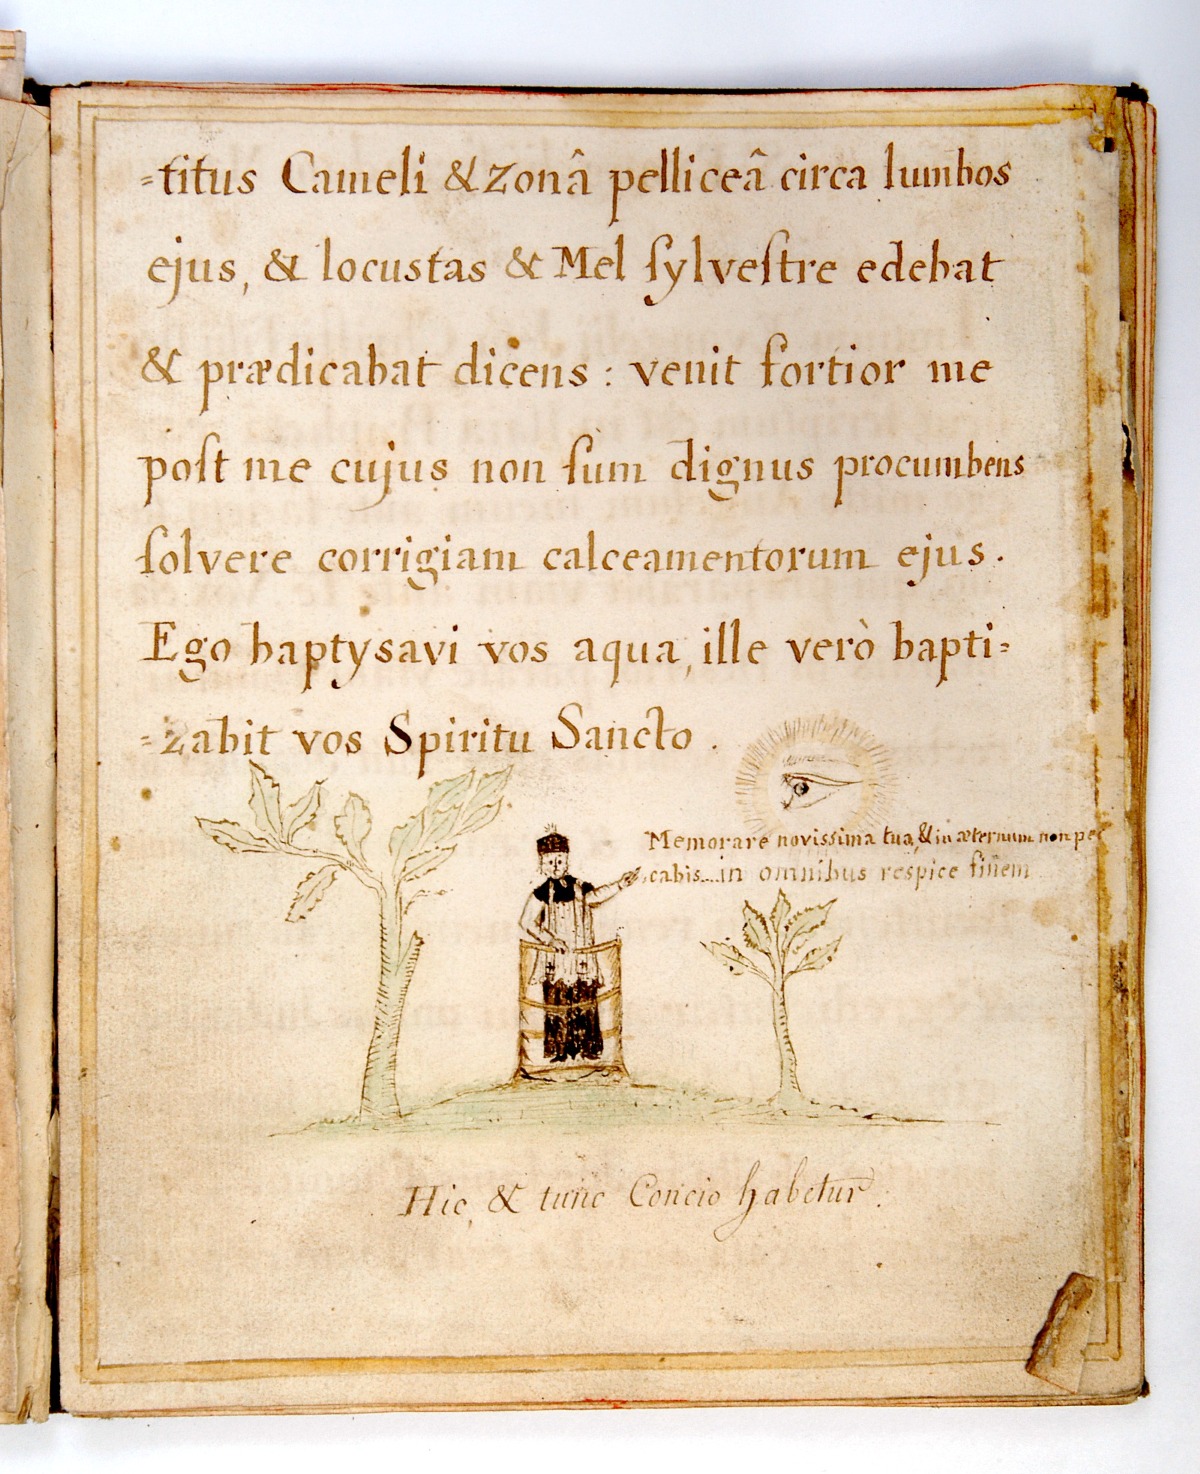 =titus Cameli & zonâ pelliceâ circa lumbos
ejus, & locustas & Mel ſylveſtre edebat
& prædicabat dicens : venit fortior me
poſt me cujus non ſum dignus procumbens
ſolvere corrigiam calceamentorum ejus.
Ego baptysavi vos aqua, ille verò bapti=
=zabit vos Spiritu Sancto.
Memorare novissima tua, & in æternum non pec
cabis... in omnibus respice finem
Hic, & tunc Concio habetur.